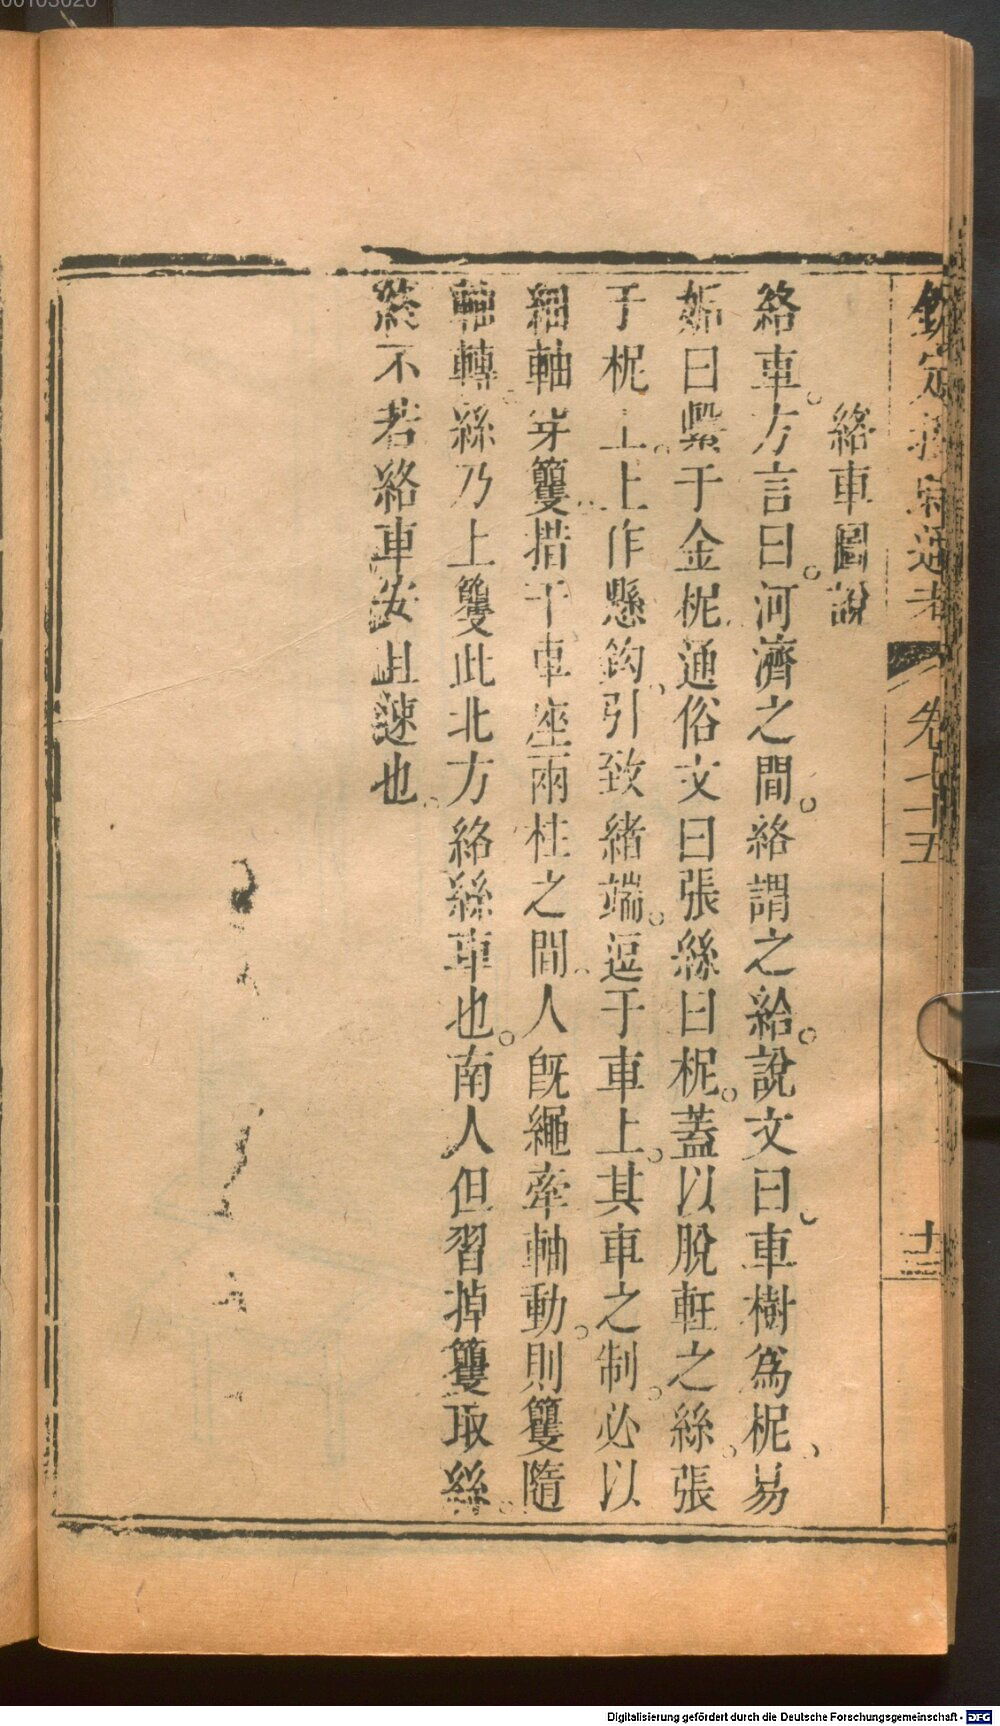 00103020
欽定授時通考 卷七十五 十三
絡車圖說
絡車。方言曰。河濟之間。絡謂之給。說文曰。車樹爲柅、易
姤曰繫于金柅、通俗文曰張絲曰柅。蓋以脫軖之絲、張
于柅上。上作懸鈎、引致緒端。逗于車上。其車之制。必以
細軸穿籰、措于車座兩柱之間、人旣繩牽軸動。則籰隨
軸轉、絲乃上籰此北方絡絲車也。南人但習掉籰取絲。
終不若絡車安且速也。
Digitalisierung gefördert durch die Deutsche Forschungsgemeinschaft - DFG